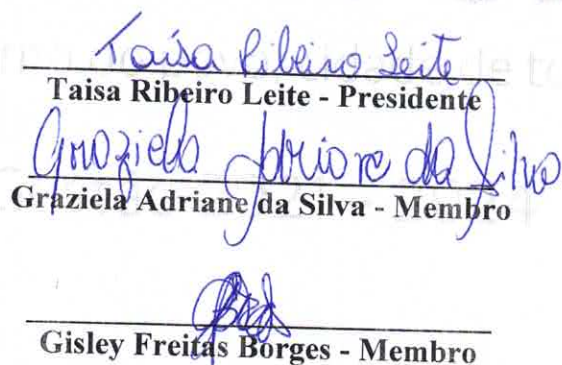 Taisa Ribeiro Leite
Taisa Ribeiro Leite - Presidente
Graziela Adriane da Silva
Graziela Adriane da Silva - Membro
Gisley Freitas Borges - Membro